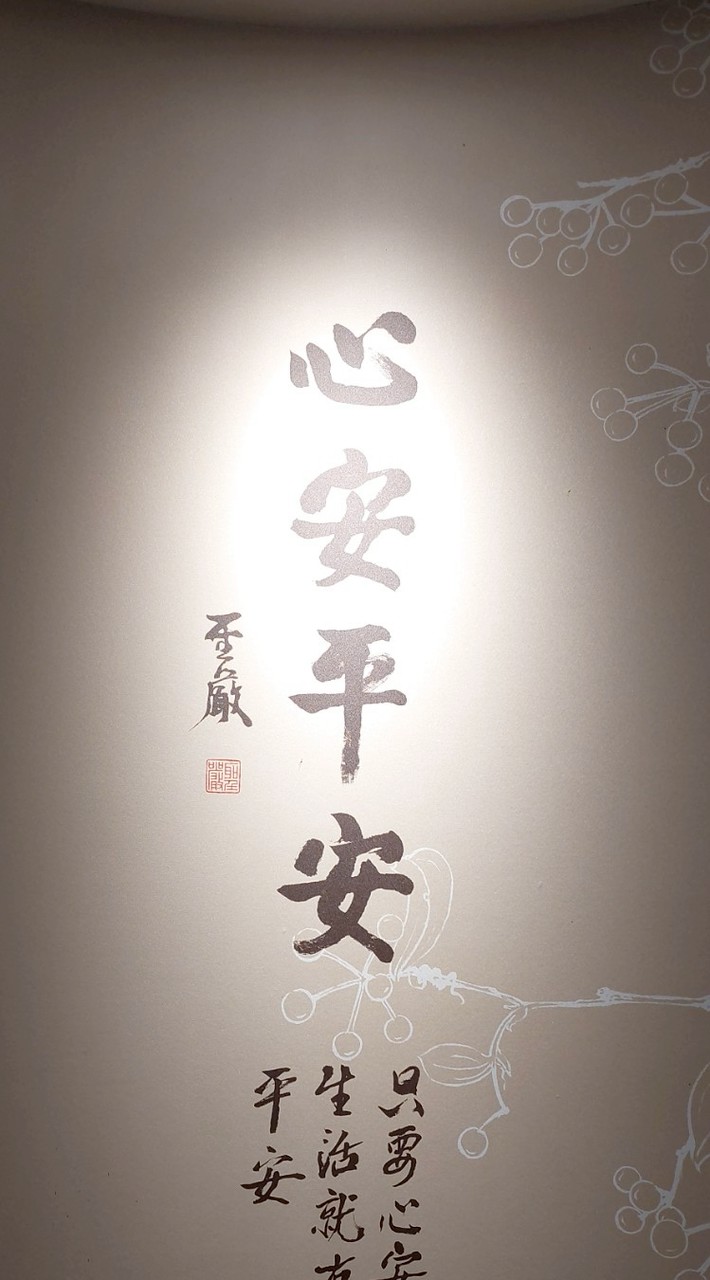 心安平安
聖嚴
聖嚴
只要心安
生活就有
平安